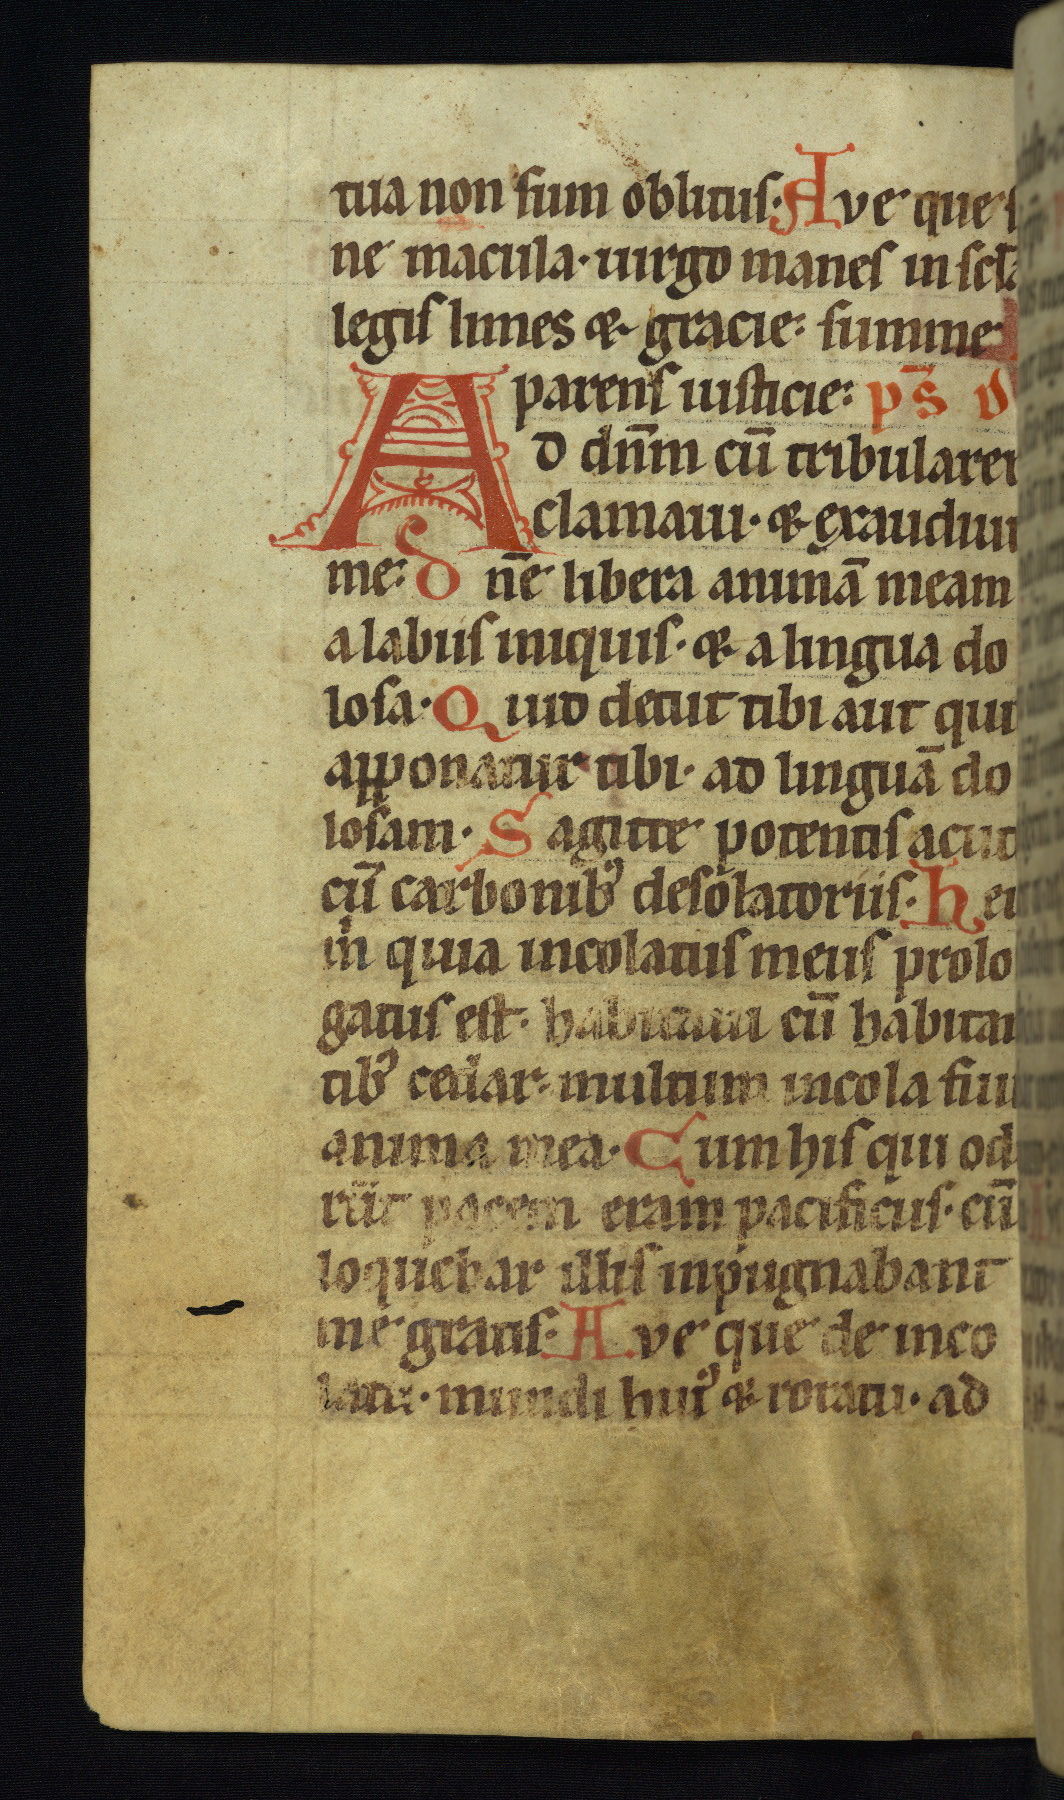 tua non sum oblitus· Ave que s
ne macula· uirgo manes in scła
legis limes & gracie: summe
parens iusticie: ps̄ v
Ad dn̄m cū tribularer
clamaui· & exaudiuit
me: Dn̄e libera animā meam
a labiis iniquis· & a lingua do
losa· Quid detur tibi aut qui
apponatur tibi· ad linguā do
losam· Sagitte potentis acut
cū carbonib᷒ desolatoriis· Hei
m̍ quia incolatus meus prolo
gatus est· habitaui cū habitan
tib᷒ cedar· multum incola fuit
anima mea· Cum his qui ode
rūt pacem eram pacificus· cū
loquebar illis inpugnabant
me gratis· Ave que de inco
latu· mundi hui᷒ & rotatu· ad